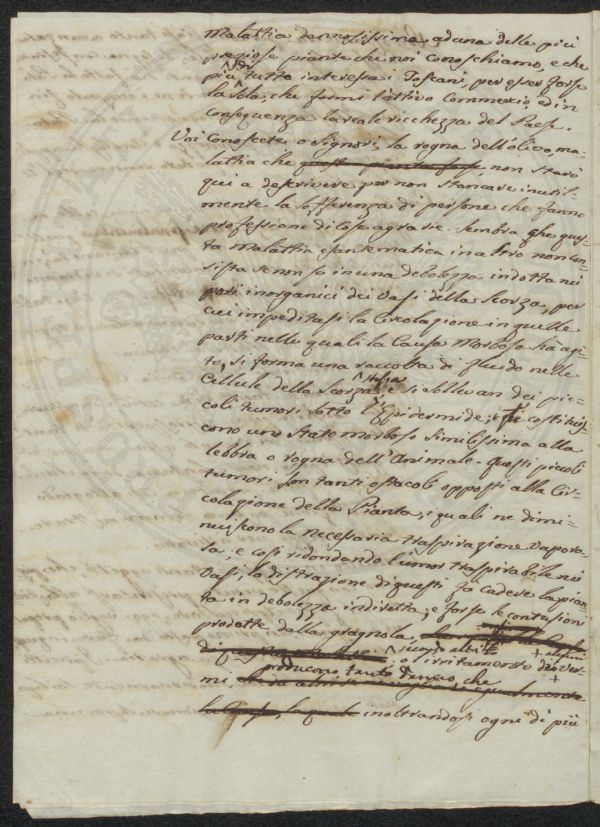 malattia dannosissima ad una delle più
preziose piante che noi conoschiamo, e che
più di tutto interessa i Toscani, per esser forse
la sola, che formi l'attivo commercio, ed in
conseguenza la reale ricchezza del Paese.
Voi conoscete o Signori, la rogna dell'olivo, ma=
lattia che questa pianta forse, non starò
qui a descrivere per non stancare inutil=
mente la sofferenza di persone che fanno
professione di cose agrarie. Sembra che ques=
ta malattia esentematica in altro non con=
sista se non se in una debolezza indotta nei
pori inorganici dei vasi della scorza, per
cui impeditasi la circolazione in quelle
parti nelle quali la causa morbosa ha agi=
to, si forma una raccolta di fluido nelle
cellule della scorza stessa e si sollevan dei pic=
coli tumori sotto l'Epidermide, e costituis=
cono uno stato morboso similissima alla
lebbra o rogna dell'Animale. Questi piccoli
tumori son tanti ostacoli opposti alla cir=
colazione della Pianta, i quali ne dimi=
nuiscono la necessaria traspirazione vaporo
sa, e così ridondando l'umor traspirabile nei
vasi, la distrazione di questi fa cadere la pian=
ta in debolezza indiretta, e forse le contusioni
prodotte dalla gragnola,
secondo altri + alcuni
o l'irritamento dei ver=
producono tanto danno, che
mi,
la quale inoltrandosi ogni dì più